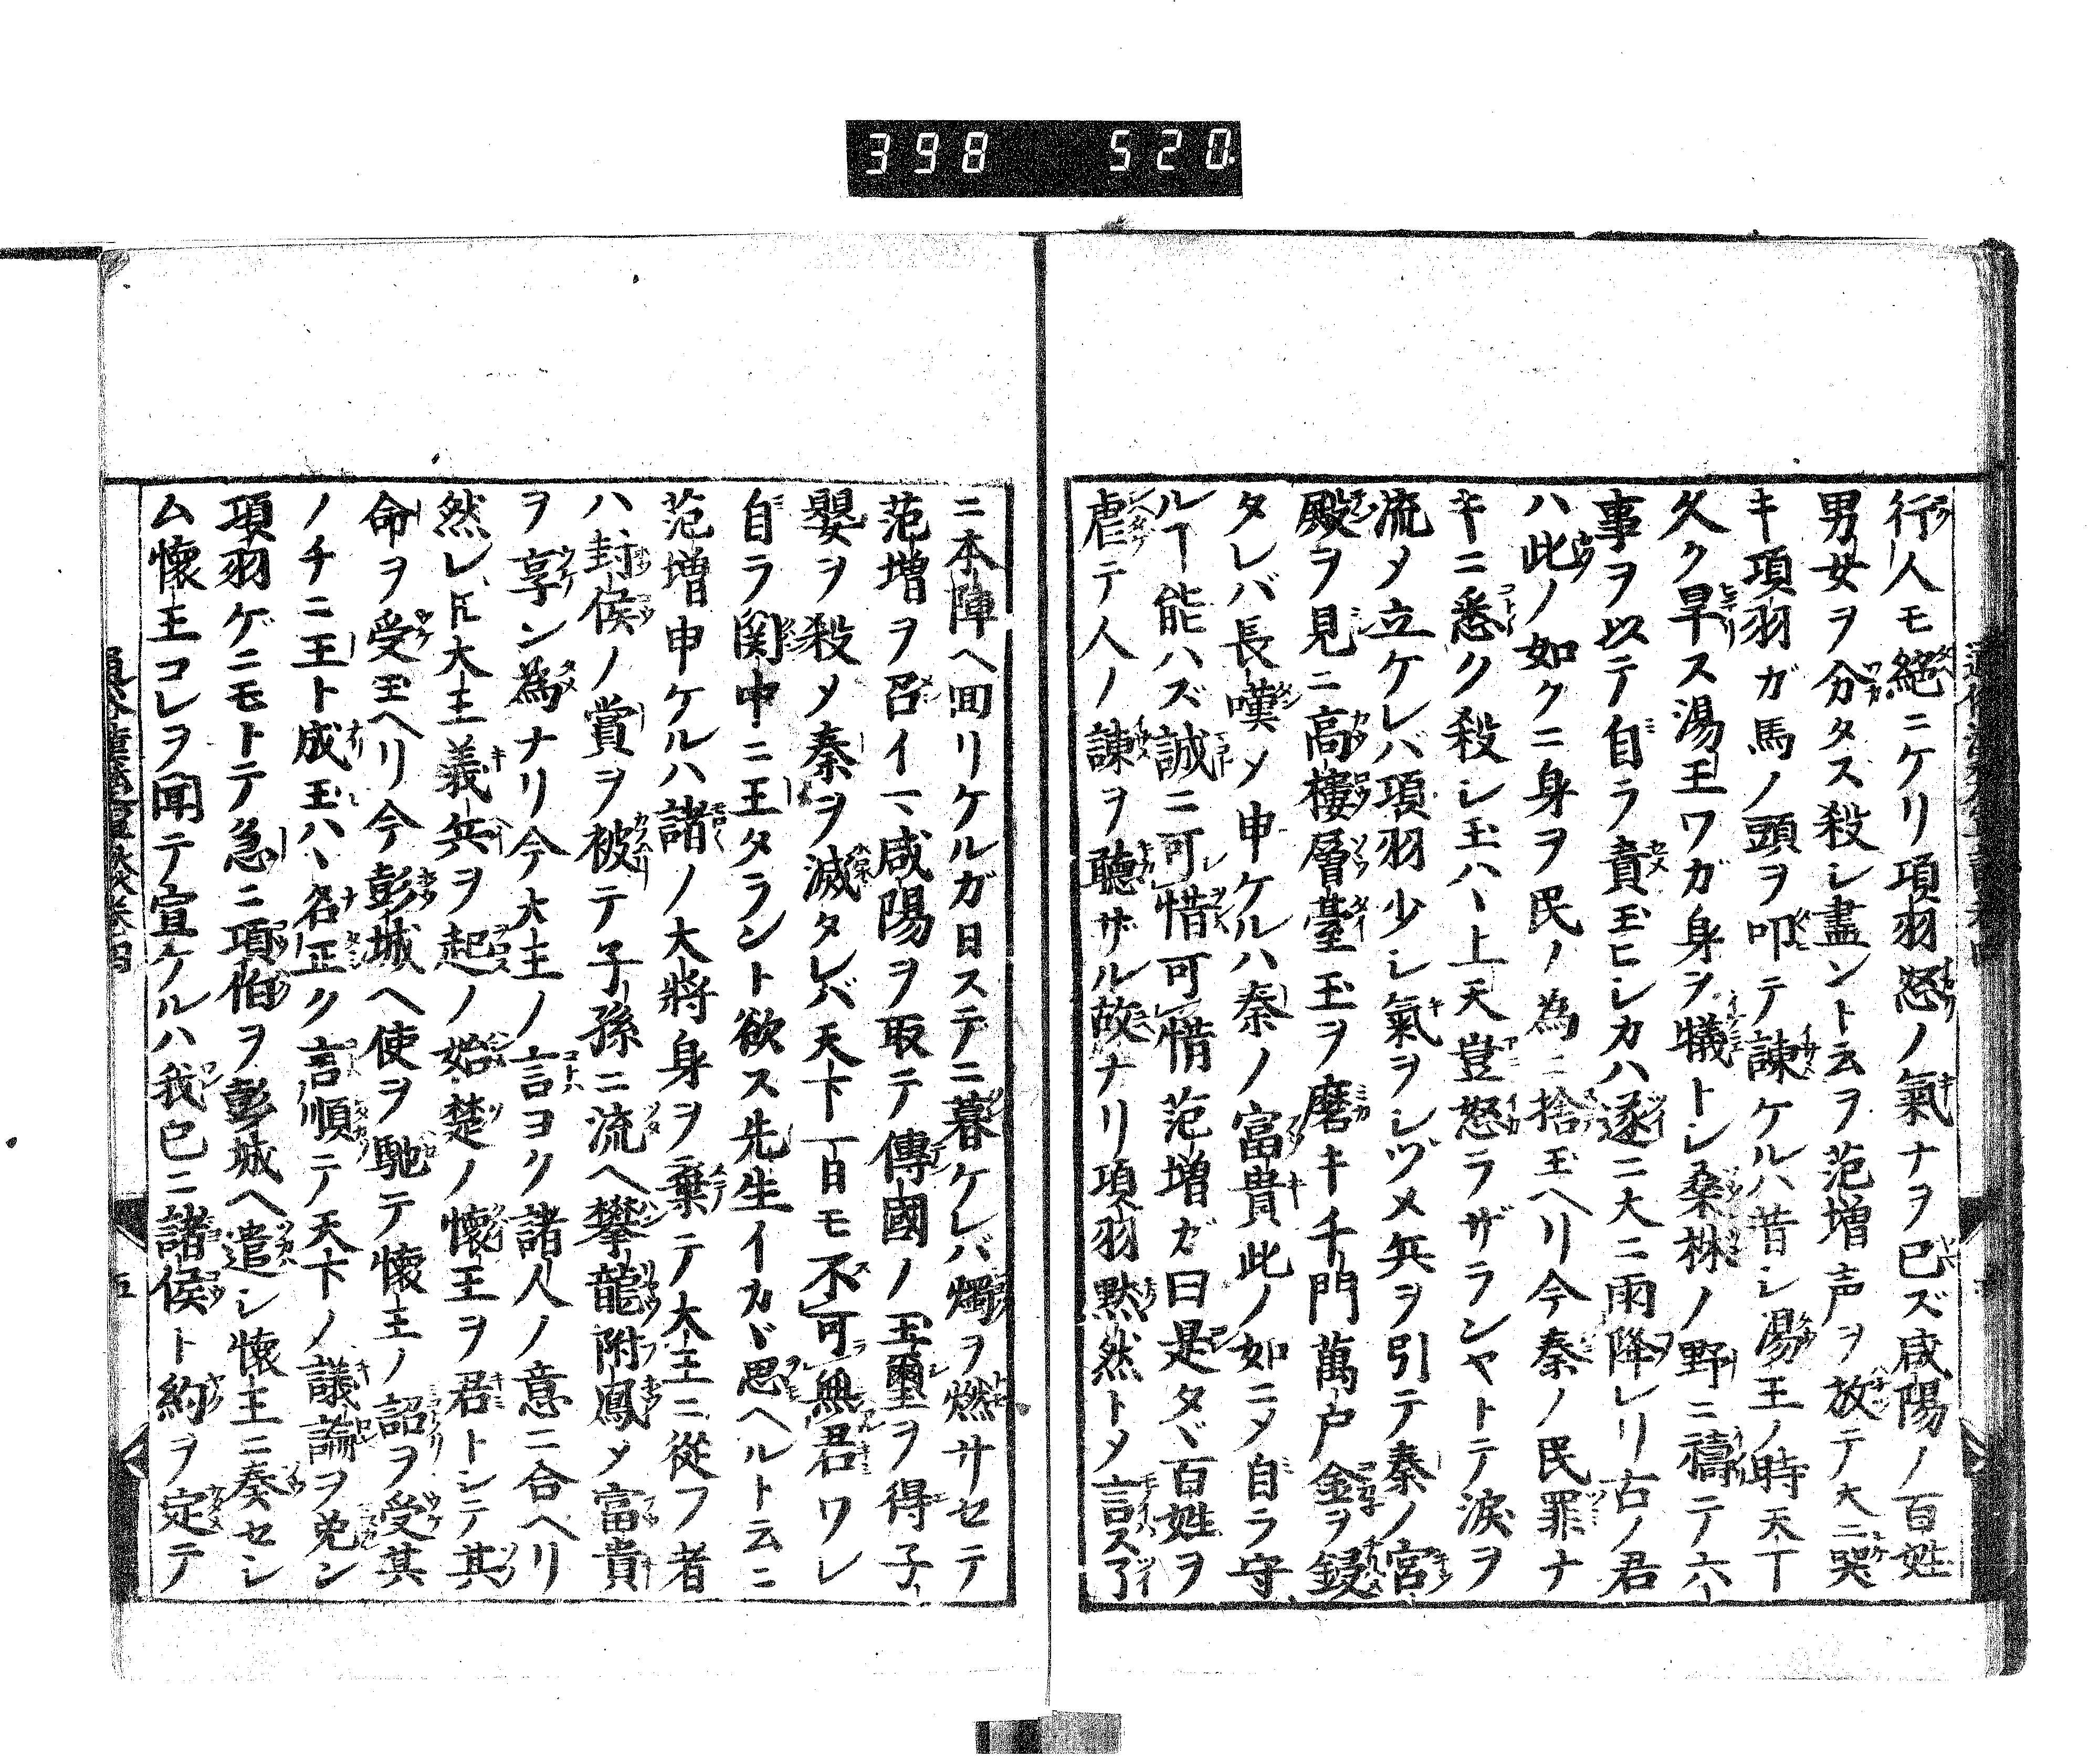 398 520
行人モ絶ニケリ項羽怒ノ氣ナヲ已ズ咸陽ノ百姓
男女ヲ分タス殺シ盡ントムヲ范増声ヲ放テ大ニ哭
キ項羽ガ馬ノ頭ヲ叩テ諌ケルハ昔シ湯王ノ時天下
久ク旱ス湯王ワガ身ヲ犠トシ桑林ノ野ニ禱テ六
事ヲ以テ自ラ責玉ヒシカハ遂ニ大ニ雨降レリ古ノ君
ハ此ノ如クニ身ヲ民ノ為ニ捨玉ヘリ今秦ノ民罪ナ
キニ悉ク殺シ玉ハヽ上天豈怒ラザランヤトテ涙ヲ
流メ立ケレバ項羽少シ氣ヲシヅメ兵ヲ引テ秦ノ宮
殿ヲ見ニ高樓層臺玉ヲ磨キ千門萬戸金ヲ鋟
タレバ長嘆メ申ケルハ秦ノ富貴此ノ如ニメ自ラ守
ルヿ能ハズ誠ニ可惜可惜范増ガ曰是タヾ百姓ヲ
虐テ人ノ諌ヲ聴ザル故ナリ項羽黙然トメ言ス了
ニ本陣ヘ回リケルガ日ステニ暮ケレバ燭ヲ燃サセテ
范増ヲ召イヽ咸陽ヲ取テ傳國ノ玉璽ヲ得子
嬰ヲ殺メ秦ヲ滅タレバ天下一日モ不可無君ワレ
自ラ関中ニ王タラント欲ス先生イカヾ思ヘルト云ニ
范増申ケルハ諸ノ大將身ヲ棄テ大王ニ從フ者
ハ封侯ノ賞ヲ被テ子孫ニ流ヘ攀龍附鳳メ富貴
ヲ享ン為ナリ今大王ノ言ヨク諸人ノ意ニ合ヘリ
然レ𪜈大王義兵ヲ起ノ始楚ノ懐王ヲ君トシテ其
命ヲ受玉ヘリ今彭城ヘ使ヲ馳テ懐王ノ詔ヲ受其
ノチニ王ト成玉ハヽ名正ク言順テ天下ノ議論ヲ免ン
項羽ゲニモトテ急ニ項伯ヲ彭城ヘ遣シ懐王ニ奏セシ
ム懐王コレヲ聞テ宣ケルハ我已ニ諸侯ト約ヲ定テ